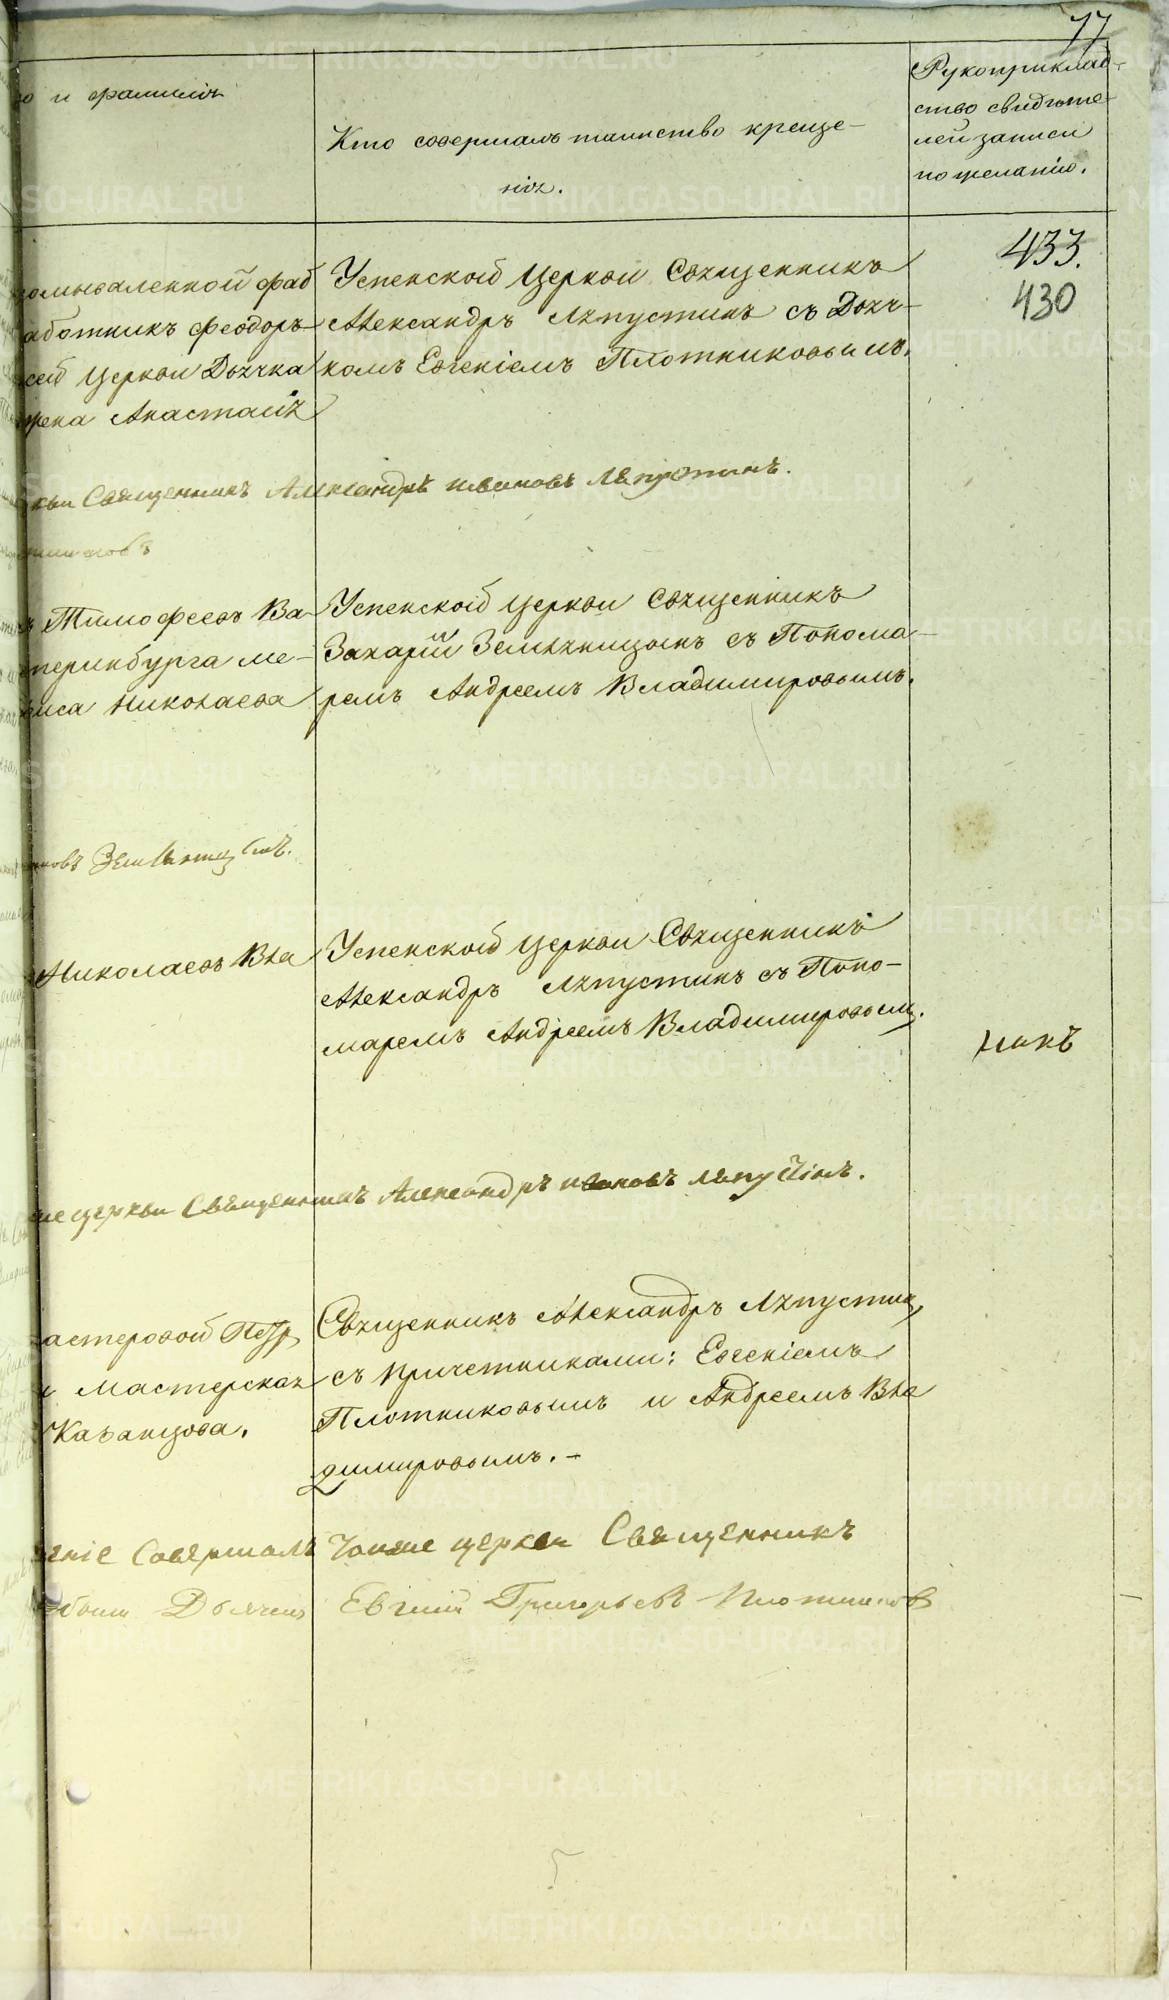 77
о и фамилія
Кто совершалъ таинство креще-
нія.
Рукоприклад-
ство свидѣте-
лей записи
по желанію.
433.
430
фаб
аботникъ Феодоръ
сей Церкви Дьячка
жена Анастасія
Успенской Церкви Священникъ
Александръ Ляпустинъ съ Дьяч-
комъ Евгеніемъ Плотниковымъ.
кви Священникъ Александръ Ивановъ Ляпустинъ.
Тимофеевъ Ва-
теринбурга ме-
Николаева
Успенской Церкви Священникъ
Захарій Земляницынъ съ Понома-
ремъ Андреемъ Владимировымъ.
новъ Земляницынъ.
Николаевъ Вла
Успенской Церкви Священникъ
Александръ Ляпустинъ съ Поно-
маремъ Андреемъ Владимировым.
никъ
же церкви Священникъ Александръ Ивановъ Ляпустинъ.
астеровой Петр
и мастерская
Казанцова.
Священникъ Александръ Ляпустин,
съ причетниками: Евгеніемъ
Плотниковымъ и Андреемъ Вла
димировымъ.-
еніе Совершалъ тоиже церкви Священникъ
Дьячекъ Евгеній Григорьевъ Плотников
METRIKI.GASO-URAL.RU